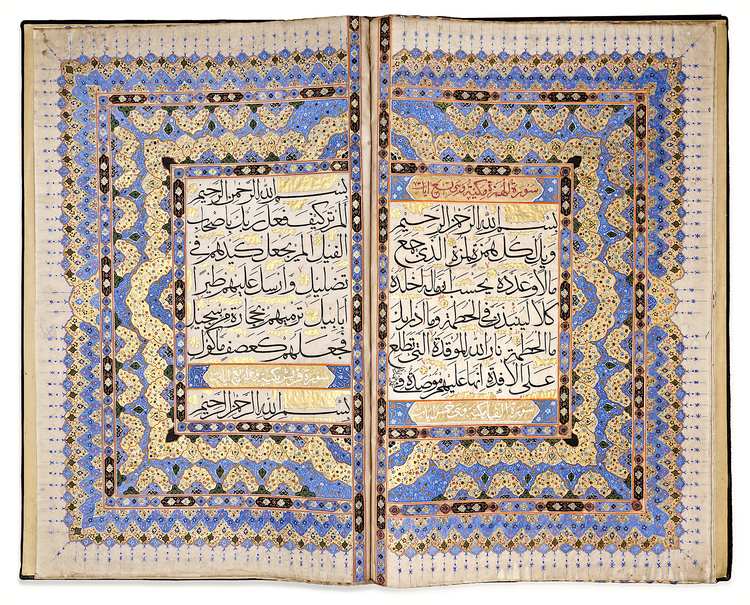 سورة الهمزة مكية وهى تسع ايات
بسم الله الرحمن الرحيم
ويل لكل همزة لمزة الذي جمع
مالا وعدده يحسب ان ماله اخلده
كلا لينبذن في الحطمة وما ادريك
ما الحطمة نار الله الموقدة التي تطلع
على الافئدة انها عليهم موصدة في
سورة الفيل مكية وهى خمس ايات
بسم الله الرحمن الرحيم
الم تر كيف فعل ربك باصحاب
الفيل الم يجعل كيدهم في
تضليل وارسل عليهم طيرا
ابابيل ترميهم بحجارة من سجيل
فجعلهم كعصف مأكول
سورة قريش مكية وهى اربع ايات
بسم الله الرحمن الرحيم